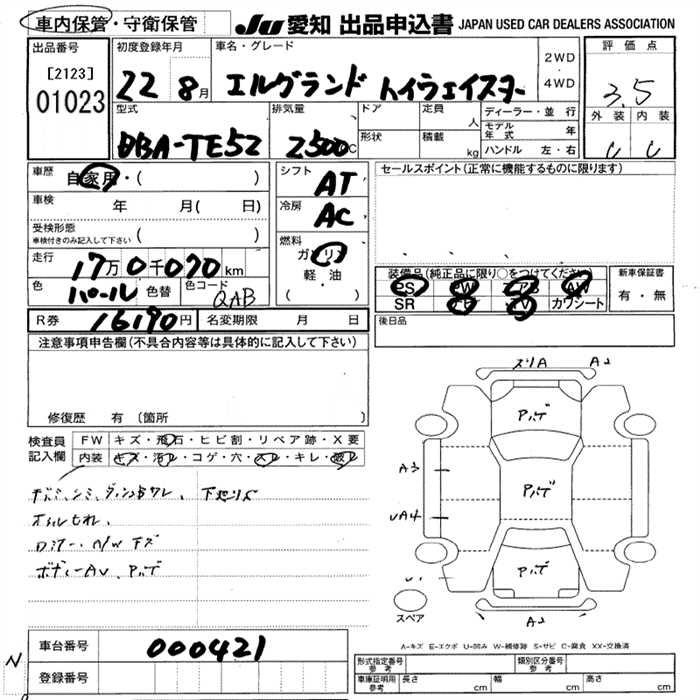 車内保管・守衛保管
JU 愛知 出品申込書 JAPAN USED CAR DEALERS ASSOCIATION
出品番号
[2123]
01023
初度登録年月
22 8月
車名・グレード
エルグランド
2WD
4WD
評価点
3.5
外装 内装
C C
型式
DBA-TE52
排気量
2500C
ドア
形状
定員
人
積載
kg
ディーラー・並行
モデル年式 年
ハンドル 左・右
車歴
自家用・( )
車検 年 月( 日)
受検形態
車検付きのみ記入して下さい ( )
走行
17万0千070km
色 パール 色替 色コード QAB
シフト AT
冷房 AC
燃料
ガソリン
軽・油
( )
セールスポイント(正常に機能するものに限ります)
装備品(純正品に限り○をつけてください)
PS PW エアB AW
SR ナビ TV カワシート
新車保証書
有・無
後日品
R券 16190円 名変期限 月 日
注意事項申告欄(不具合内容等は具体的に記入して下さい)
修復歴 有(箇所
検査員記入欄
FW キズ・飛石・ヒビ割・リペア跡・X要
内装 キズ・汚レ・コゲ・穴・スレ・キレ・破レ
オイルモレ
ズリA A2
Aバゲ
A3
Aバゲ
UA4
U1
Aバゲ
A2
スペア
A-キズ E-エクボ U-凹み W-補修跡 S-サビ C-腐食 XX-交換済
車台番号 000421
登録番号
N
形式指定番号 参考
類別区分番号 参考
車庫証明用 参考 長さ cm 幅 cm 高さ cm